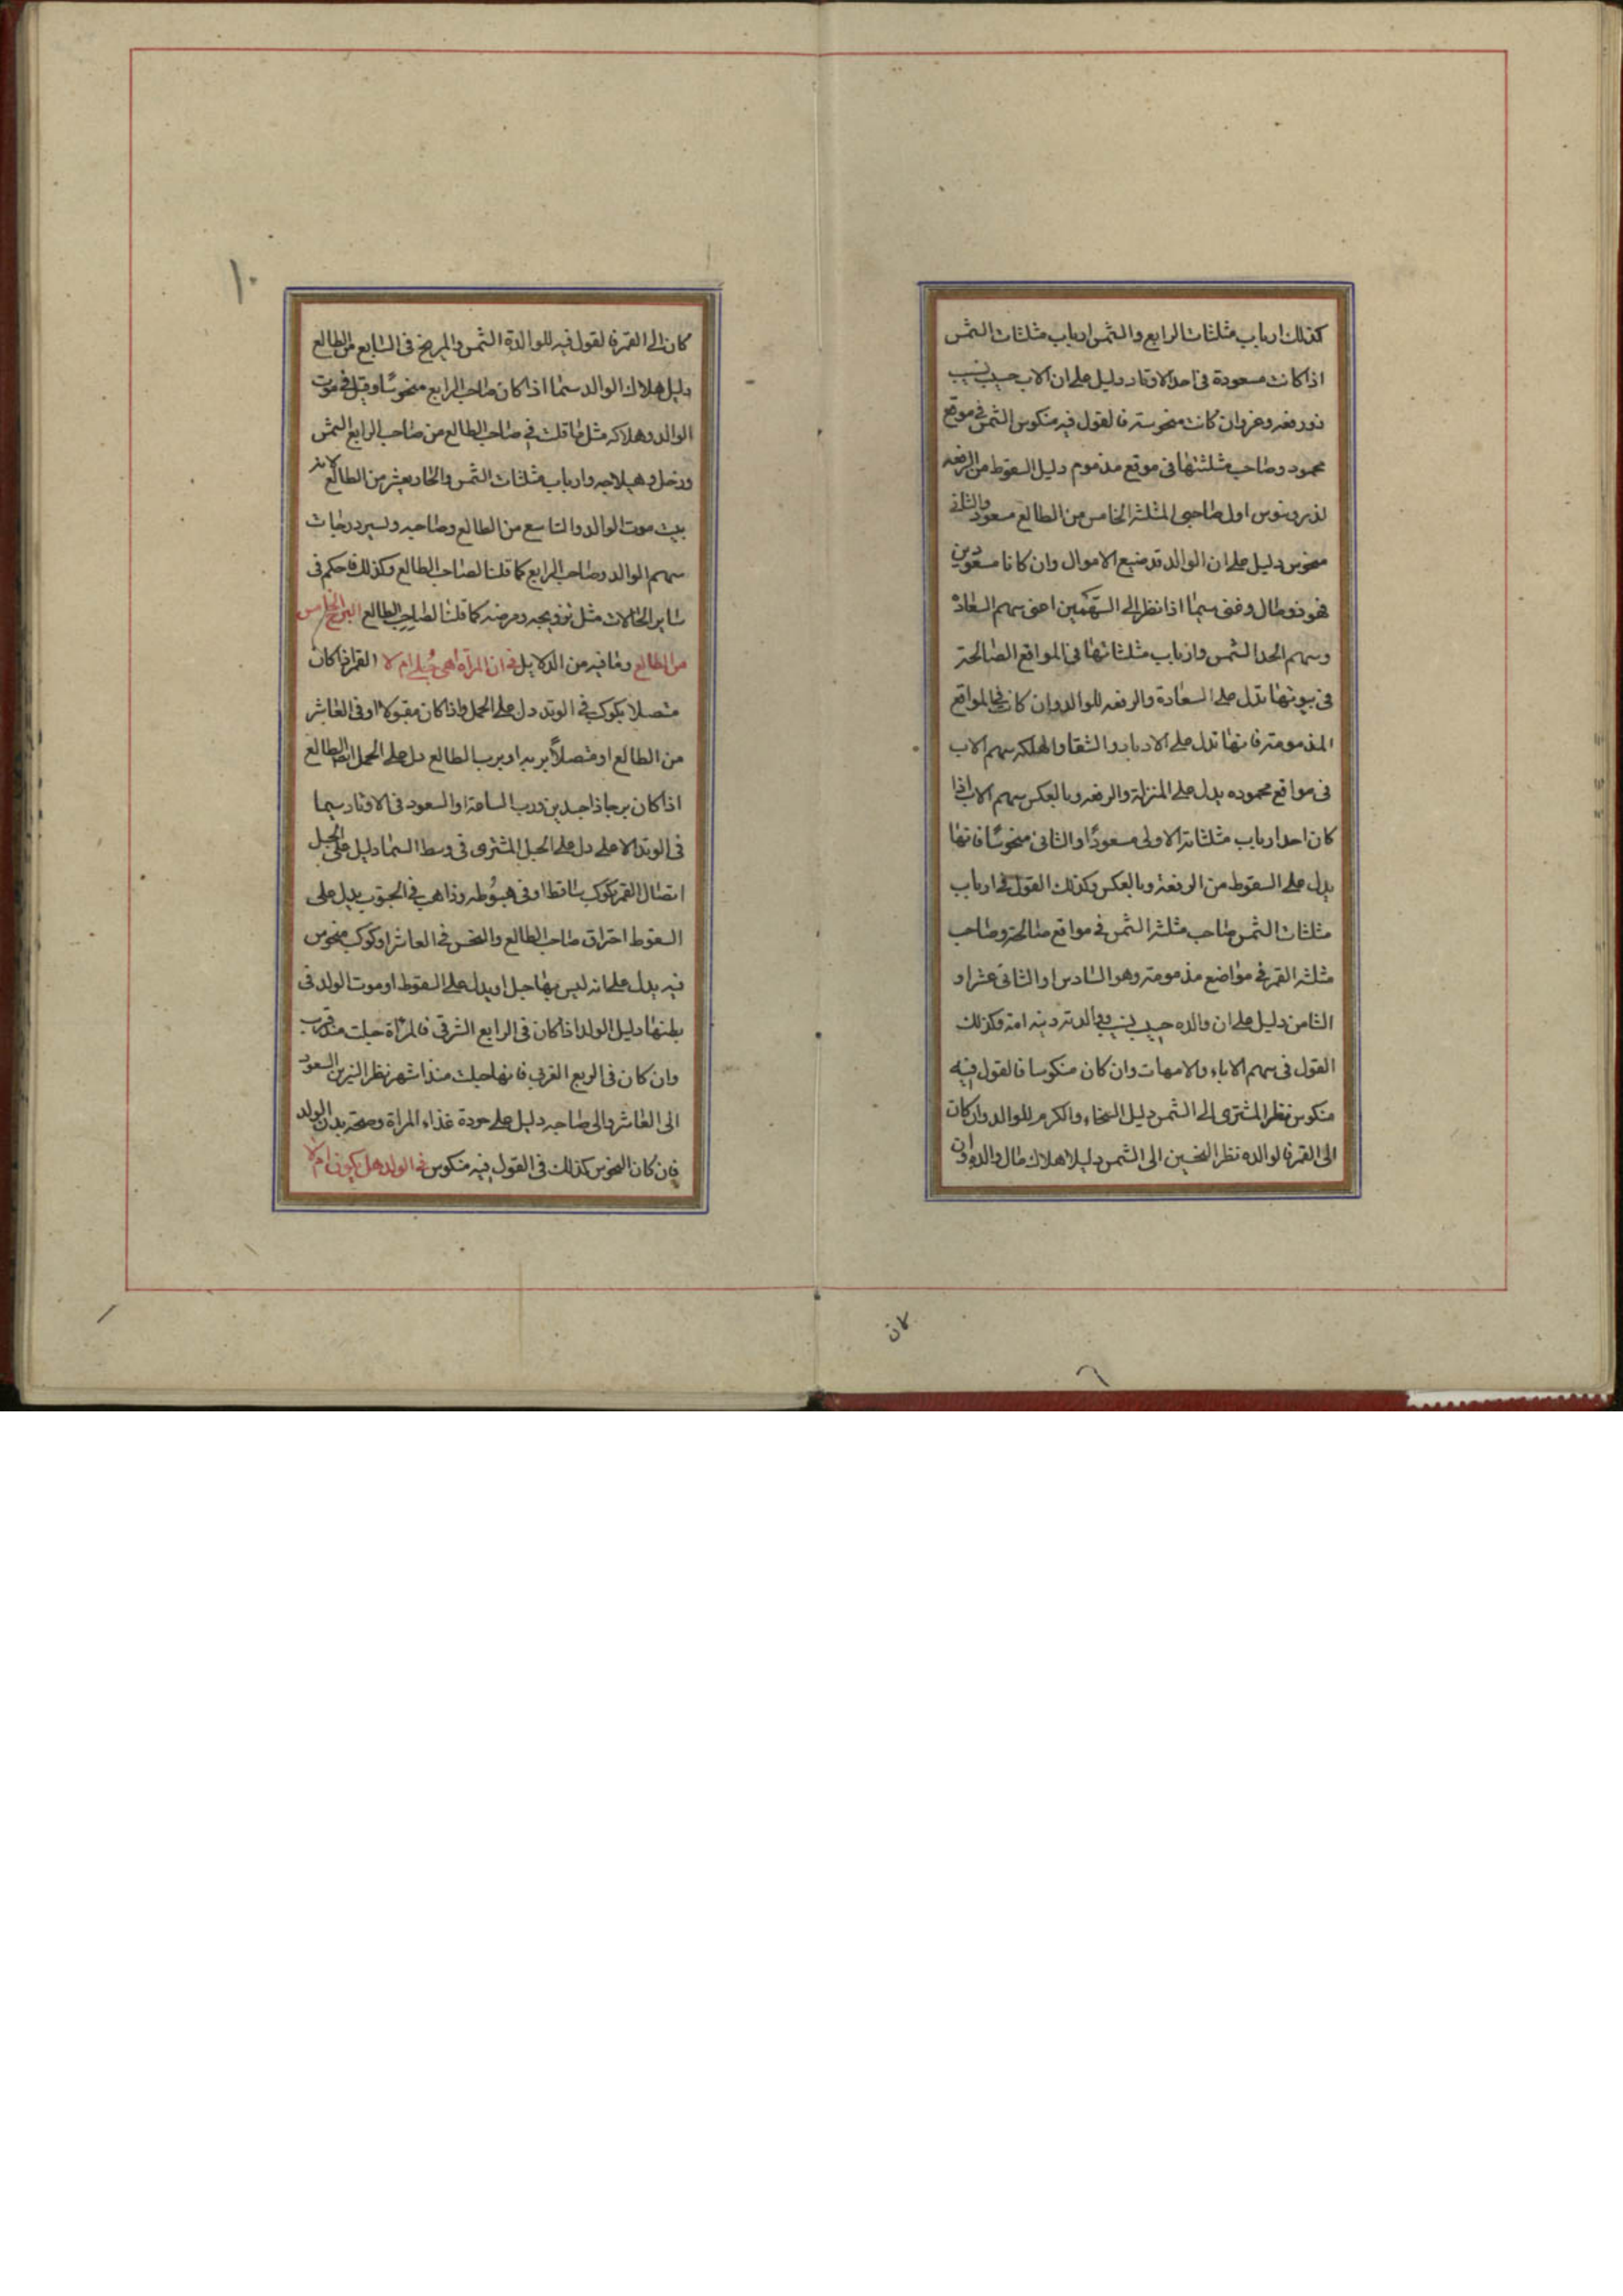 كذلك ارباب مثلثات الرابع والشمس ارباب مثلثات الشمس
اذا كانت مسعودة في احد الاوتاد دليل على ان الاب حسيب نسيب
ذو رفعه وعز وان كانت منحوسة فالقول فيه منكوس الشمس في موقع
محمود وصاحب مثلثتها في موقع مذموم دليل السقوط من الرفعه
لذرونيوس اول صاحبي المثلثه الخامس من الطالع مسعود والثاني
منحوس دليل على ان الوالد قد ضيع الاموال وان كانا مسعودين
فهو ذو مال وغنى سيما اذا نظر الى السهمين اعنى سهم السعادة
وسهم الجد الشمس وارباب مثلثاتها في المواقع الصالحة
في بيوتها تدل على السعادة والرفعه للوالد وان كان في المواقع
المذمومة فانها تدل على الادبار والشقا والهلكه سهم الاب
في مواقع محموده يدل على المنزلة والرفعه وبالعكس سهم الاب اذا
كان احد ارباب مثلثاته الاولى مسعودًا والثانى منحوسًا فانها
يدل على السقوط من الرفعة وبالعكس وكذلك القول في ارباب
مثلثات الشمس صاحب مثلثة الشمس في مواقع صالحة وصاحب
مثلثه القمر في مواضع مذمومة وهو السادس او الثانى عشر او
الثامن دليل على ان والده حسيب نسيب ووالدته دنيه امة وكذلك
القول في سهم الاباء والامهات وان كان منكوسا فالقول فيه
منكوس نظر المشترى الى الشمس دليل السخاء والكرم للوالد وان كان
الى القمر فالوالده نظر النحسين الى الشمس دليل اهلاك مال والده وان
كان
كان الى القمر فالقول فيه للوالدة الشمس والمريخ في السابع من الطالع
دليل هلاك الوالد سيما اذا كان صاحب الرابع منحوسًا وقيل في موت
الوالد وهلاكه مثل ما قلت في صاحب الطالع من صاحب الرابع الشمس
وزحل وهيلاجه وارباب مثلثات الشمس والحاديعشر من الطالع لانه
بيت موت الوالد والتاسع من الطالع وصاحبه وتسير درجات
سهم الوالد وصاحب الرابع كما قلنا لصاحب الطالع وكذلك فاحكم في
ساير الحالات مثل تزويجه ومرضه كما قلنا لصاحب الطالع البرج الخامس
من الطالع وما فيه من الدلايل في ان المرأة هى حبلى ام لا القمر اذا كان
متصلا بكوكب في الوتد دل على الحمل واذا كان مقبولا او في العاشر
من الطالع او متصلاً بربه او برب الطالع دل على الحمل الطالع
اذا كان برجا ذا جسدين ورب الساعة او السعود في الاوتاد سيما
في الوتد الاعلى دل على الحبل المشترى في وسط السما دليل على الحبل
اتصال القمر بكوكب ساقط او في هبوطه وذاهب في الجنوب يدل على
السقوط احتراق صاحب الطالع والنحس في العاشر او كوكب منحوس
فيه يدل على انه ليس بها حبل او يدل على السقوط او موت الولد في
بطنها دليل الولد اذا كان في الرابع الشرقى فالمرأة حبلت منذ قريب
وان كان في الربع الغربى فانها حبلت منذ اشهر نظر النيرين السعود
الى العاشر والى صاحبه دليل على جودة غذاء المراة وصحة بدن الولد
فان كان النحوس كذلك في القول فيه منكوس في الولد هل يكون ام لا
١٠